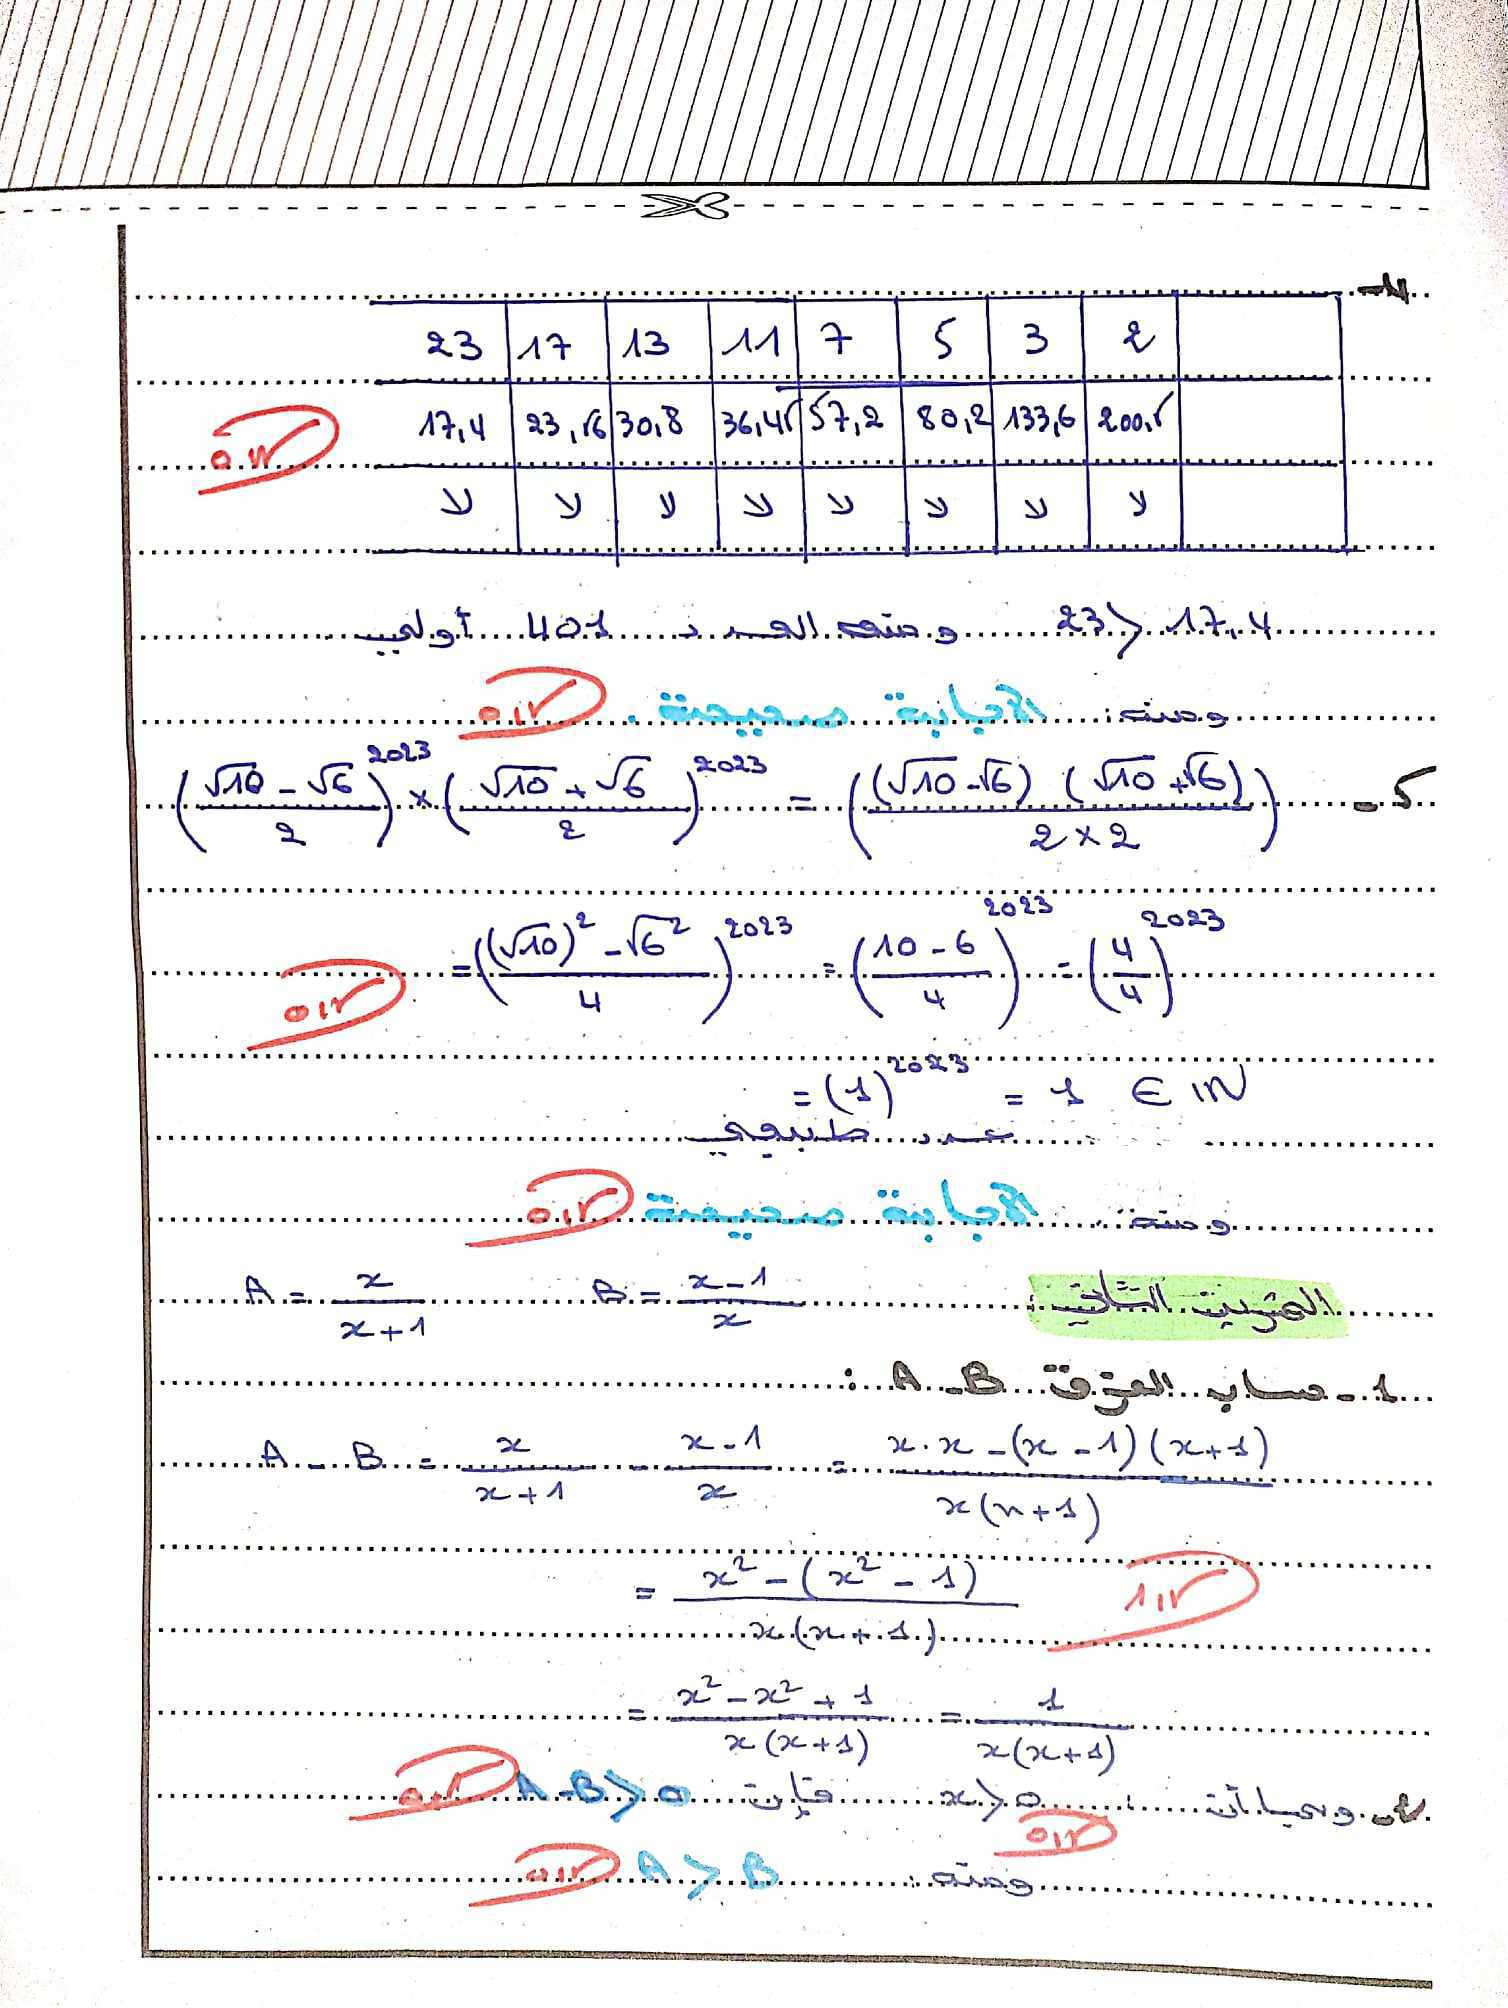 4-
2 3 5 7 11 13 17 23
200,5 133,6 80,2 57,2 36,45 30,8 23,56 17,4
لا لا لا لا لا لا لا لا
23 > 17,4 ومنه العدد 401 أولي
ومنه: الاجابة صحيحة.
5- (√10 - √6 / 2)^2023 × (√10 + √6 / 2)^2023 = ((√10 - √6) (√10 + √6) / 2 × 2)
= ((√10)² - √6² / 4)^2023 = (10 - 6 / 4)^2023 = (4 / 4)^2023
= (1)^2023 = 1 ∈ IN
عدد طبيعي
ومنه: الاجابة صحيحة
التمرين الثاني: A = x / x + 1 B = x - 1 / x
1- حساب الفرق A - B :
A - B = x / x + 1 - x - 1 / x = x . x - (x - 1) (x + 1) / x (x + 1)
= x² - (x² - 1) / x (x + 1)
= x² - x² + 1 / x (x + 1) = 1 / x (x + 1)
2- وبما أن: x > 0 فإن A - B > 0
ومنه: A > B